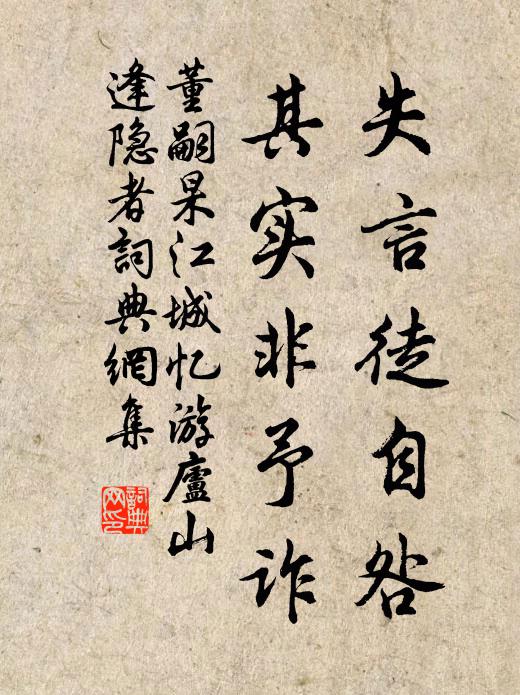 失言徒自咎
其实非予诈
董嗣杲江城忆游廬山
逢隐者詞典網集
詞典网印